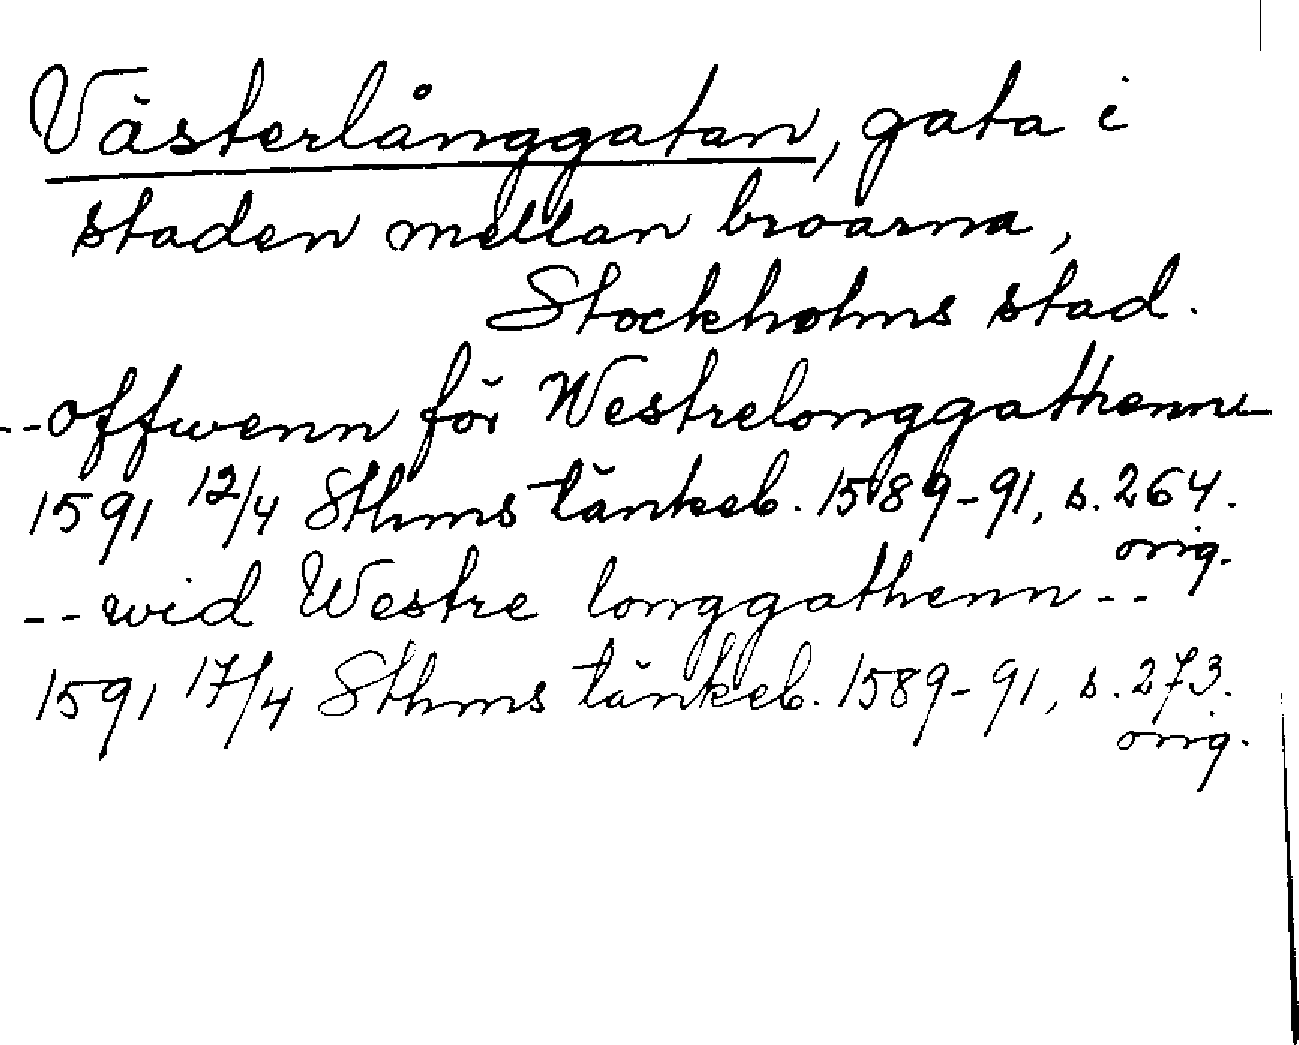 Västerlånggatan, gata i
staden mellan broarna,
Stockholms stad.
--offwenn för Westrelonggathenn-
1591 12/4 Sthms tänkeb. 1589-91, s. 264.
orig.
--wid Westre longgathenn--
1591 17/4 Sthms tänkeb. 1589-91, s. 273.
orig.